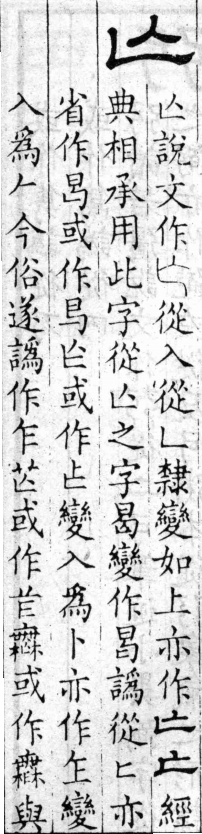 亾
亾說文作𠤎從入從乚隸變如上亦作亡亡經
典相承用此字從亾之字曷變作曷譌從匕亦
省作曷或作㫐𠤎或作𠤎變入為卜亦作𠤎變
入爲𠂉今俗遂譌作乍芒或作芒𢇲或作𢇲與